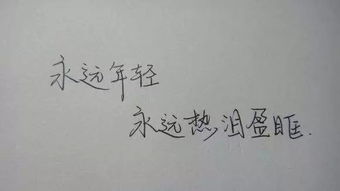 永远年轻
永远热泪盈眶.